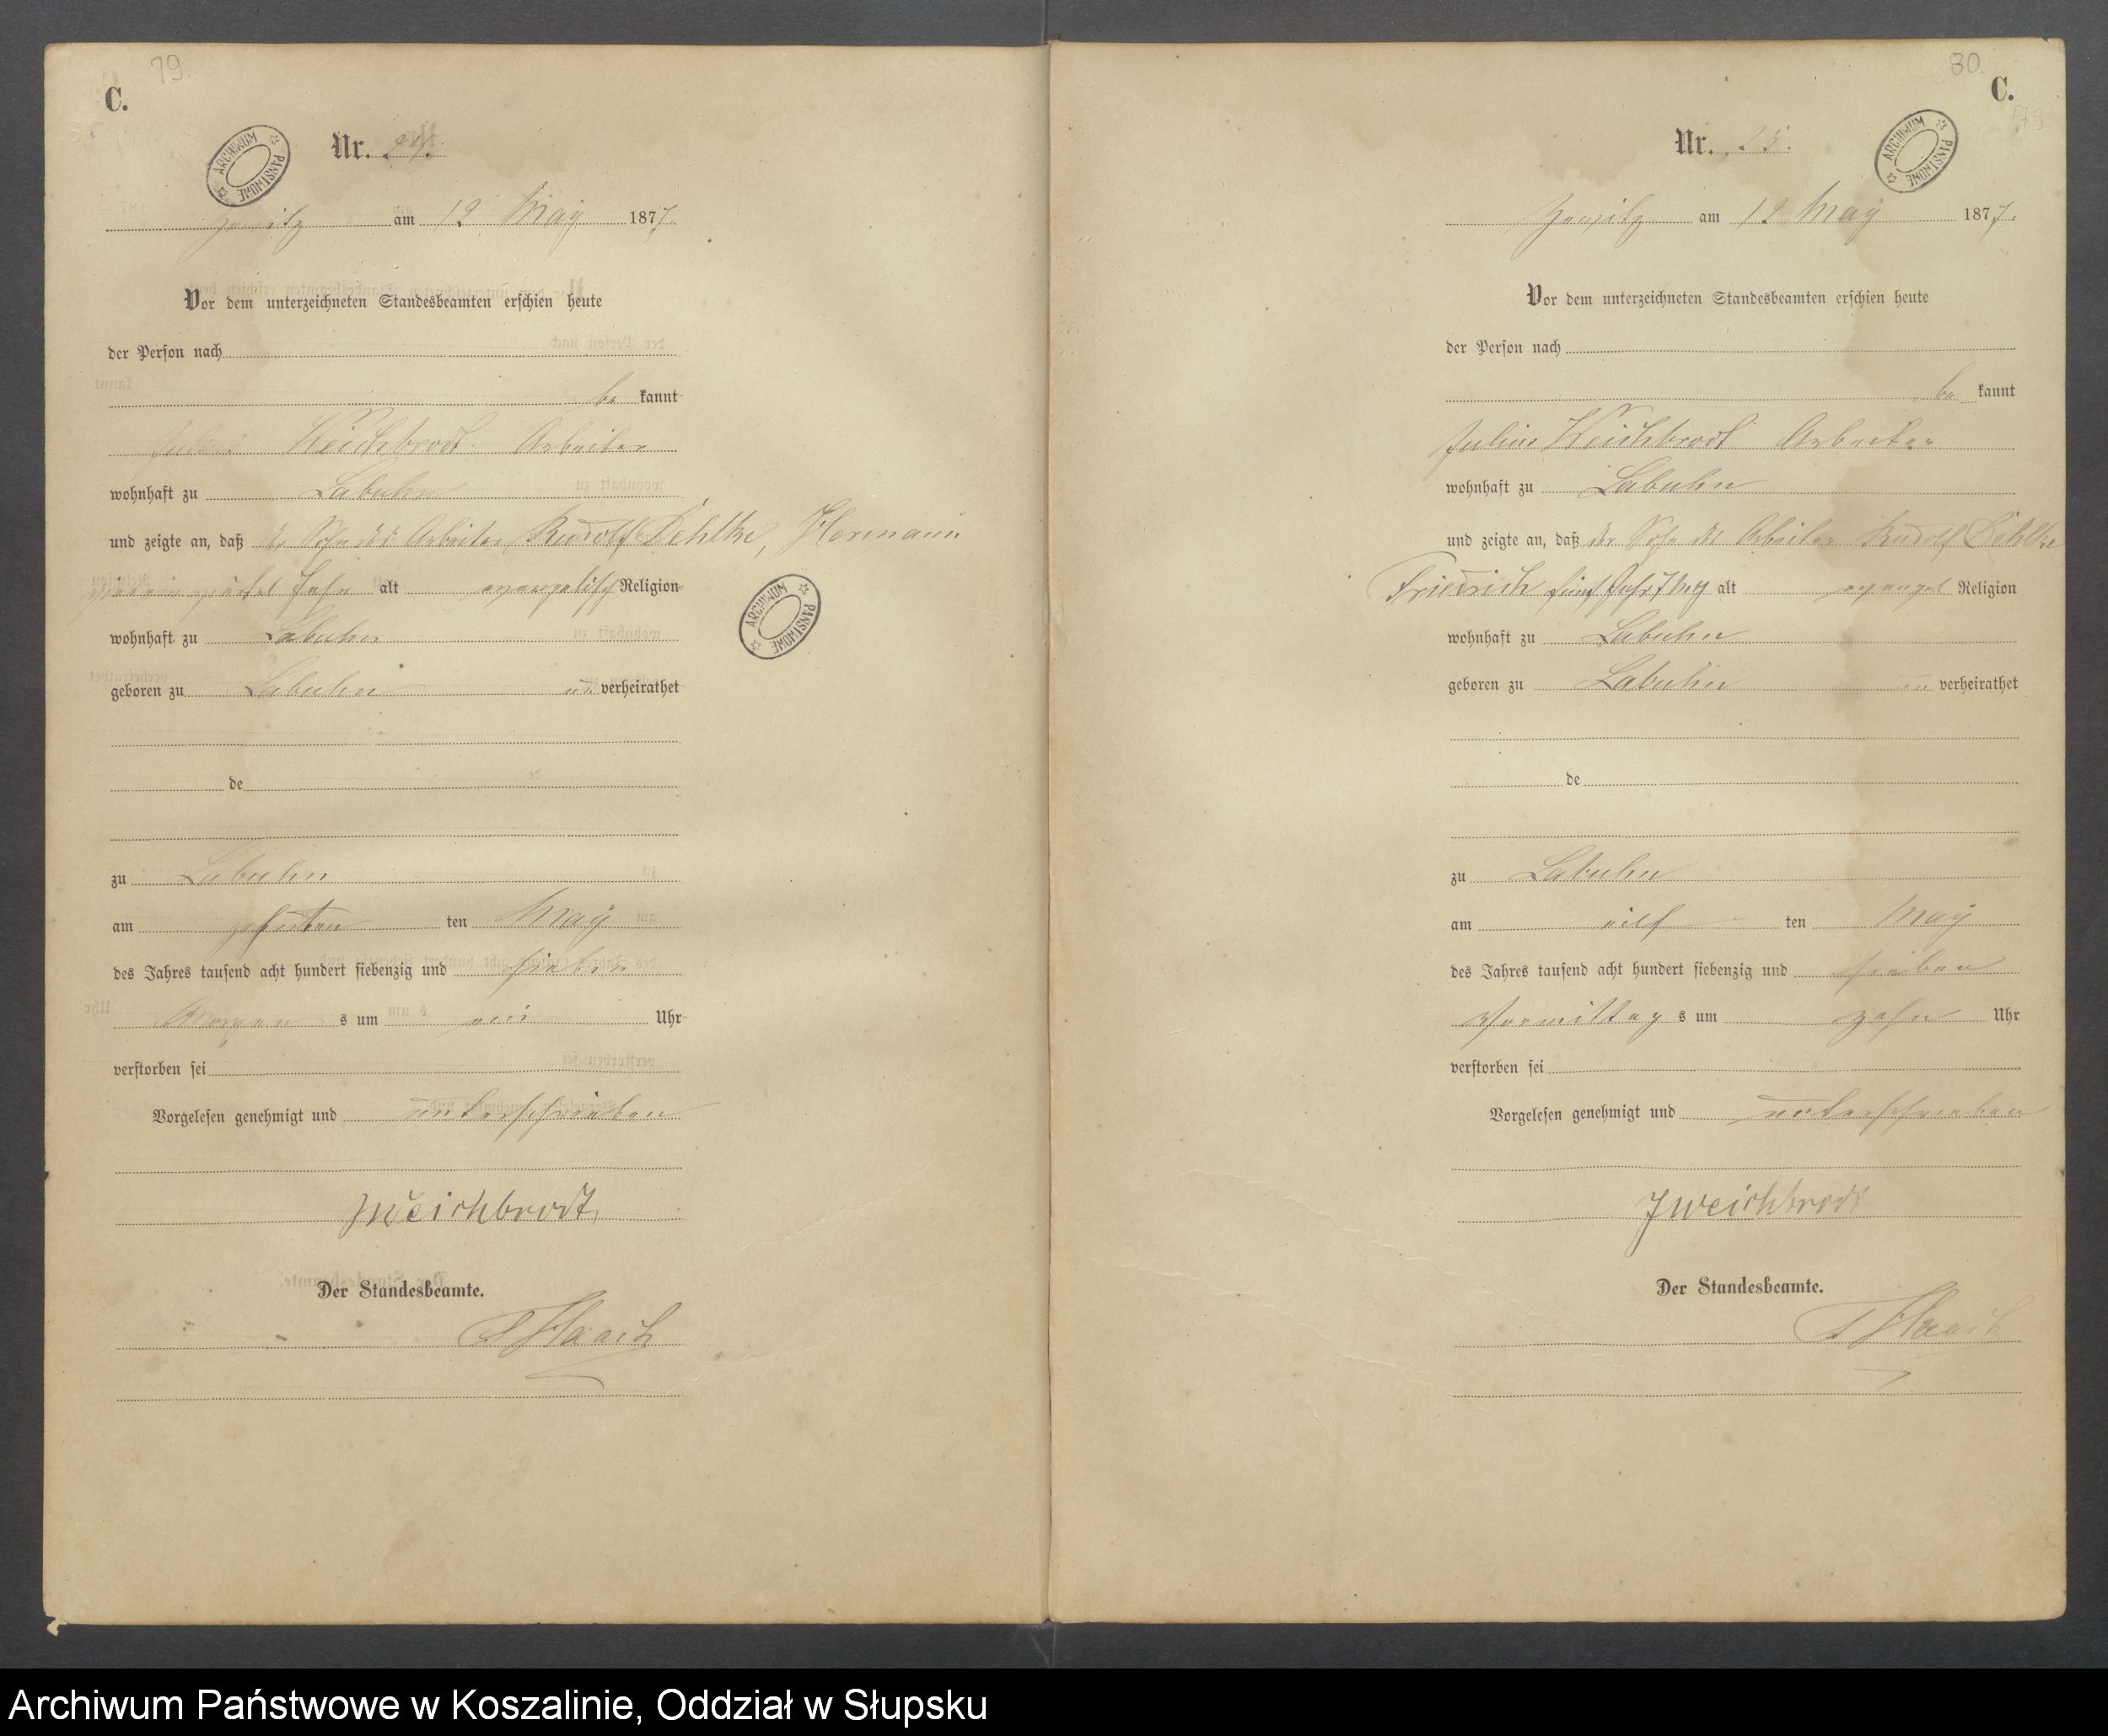 79.
C.
ARCHIWUM PAŃSTWOWE
Nr. 24.
am 12 May 1877.
Vor dem unterzeichneten Standesbeamten erschien heute
der Person nach
be kannt
Julius Weichbrodt Arbeiter
wohnhaft zu Labuhn
und zeigte an, daß der Sohn des Arbeiter Rudolf Dehlke, Hermann
Jahr alt evangelisch Religion
wohnhaft zu Labuhn
geboren zu Labuhn un verheirathet
de
zu Labuhn
am zehnten ten May
des Jahres tausend acht hundert siebenzig und sieben
Morgen s um ein Uhr
verstorben sei
Vorgelesen genehmigt und unterschrieben
JWeichbrodt
Der Standesbeamte.
Haack
ARCHIWUM PAŃSTWOWE
80.
C.
79
ARCHIWUM PAŃSTWOWE
Nr. 25.
am 12 May 1877.
Vor dem unterzeichneten Standesbeamten erschien heute
der Person nach
be kannt
Julius Weichbrodt Arbeiter
wohnhaft zu Labuhn
und zeigte an, daß der Sohn des Arbeiter Rudolf Dehlke
Friedrich fünf Jahr alt evangel Religion
wohnhaft zu Labuhn
geboren zu Labuhn un verheirathet
de
zu Labuhn
am eilf ten May
des Jahres tausend acht hundert siebenzig und sieben
Vormittag s um zehn Uhr
verstorben sei
Vorgelesen genehmigt und unterschrieben
JWeichbrodt
Der Standesbeamte.
Haack
Archiwum Państwowe w Koszalinie, Oddział w Słupsku